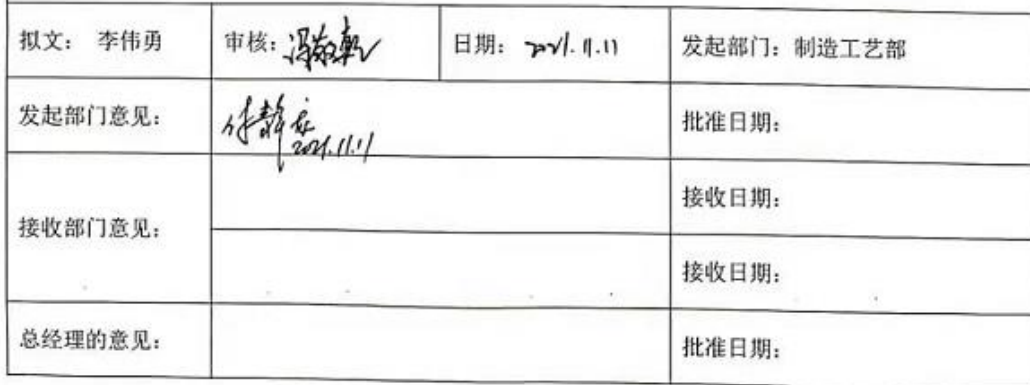 拟文： 李伟勇 审核： 日期：2021.11.11 发起部门：制造工艺部
发起部门意见： 批准日期：
2021.11.11
接收日期：
接收部门意见：
接收日期：
总经理的意见： 批准日期：